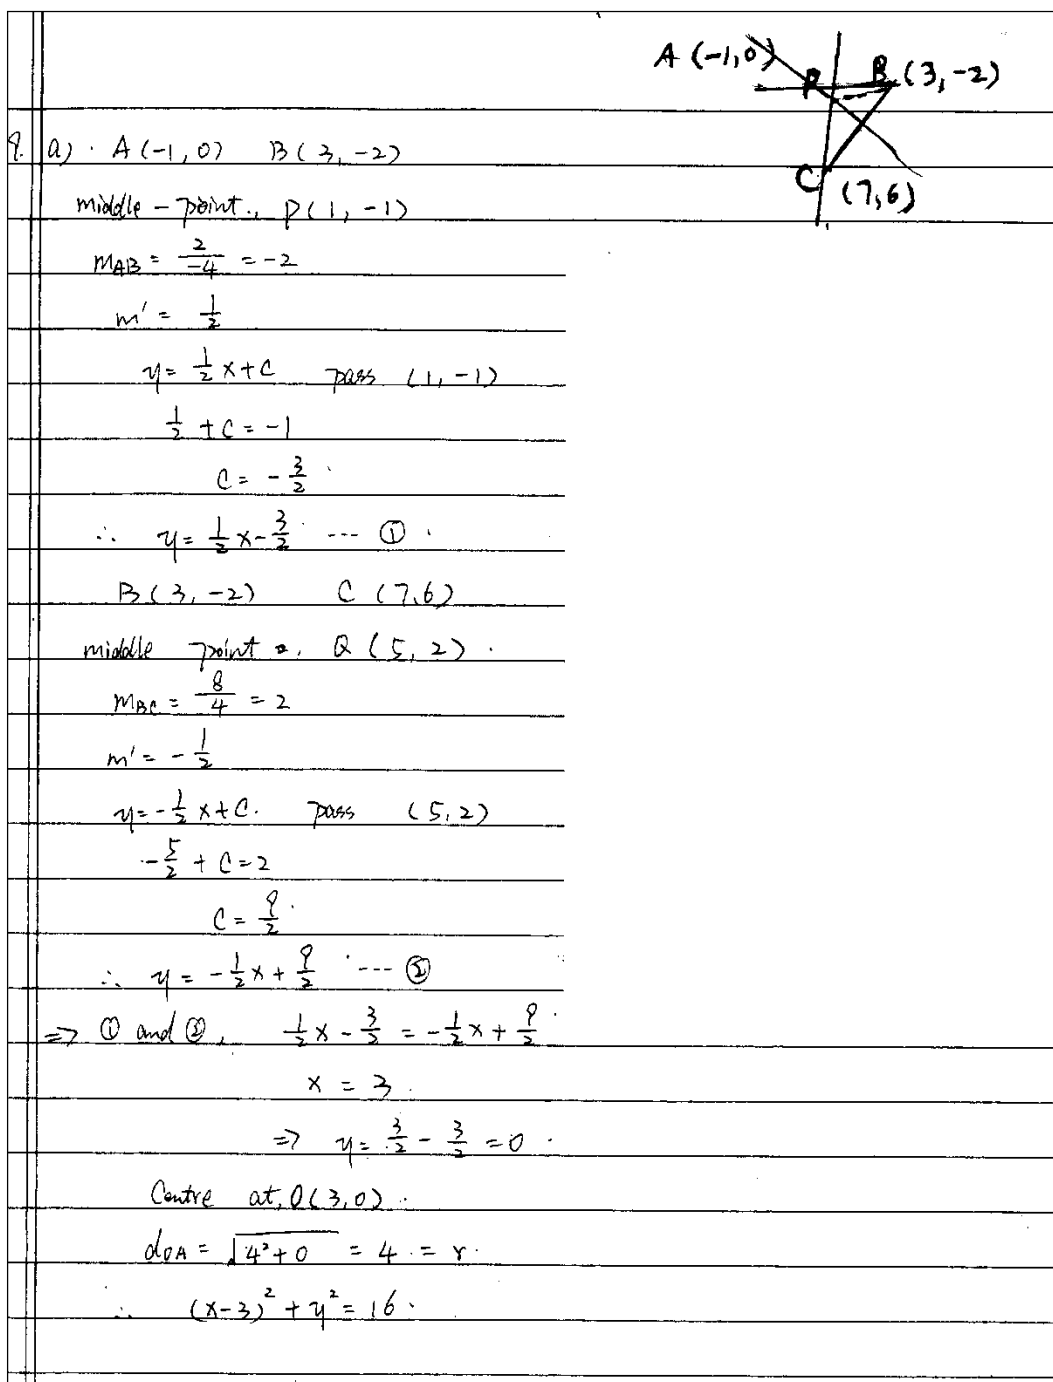 A (-1,0) B (3,-2)
P
C (7,6)
9. a) . A (-1, 0) B (3, -2)
middle - point., P(1, -1)
m_AB = 2/-4 = -2
m' = 1/2
y = 1/2 x + C pass (1, -1)
1/2 + C = -1
C = -3/2
∴ y = 1/2 x - 3/2 --- ①
B (3, -2) C (7,6)
middle point . Q (5, 2) .
m_BC = 8/4 = 2
m' = -1/2
y = -1/2 x + C. pass (5, 2)
-5/2 + C = 2
C = 9/2
∴ y = -1/2 x + 9/2 --- ②
=> ① and ②, 1/2 x - 3/2 = -1/2 x + 9/2
x = 3 .
=> y = 3/2 - 3/2 = 0 .
Centre at, O(3,0) .
d_OA = √(4² + 0) = 4 . = r .
∴ (x-3)² + y² = 16 .